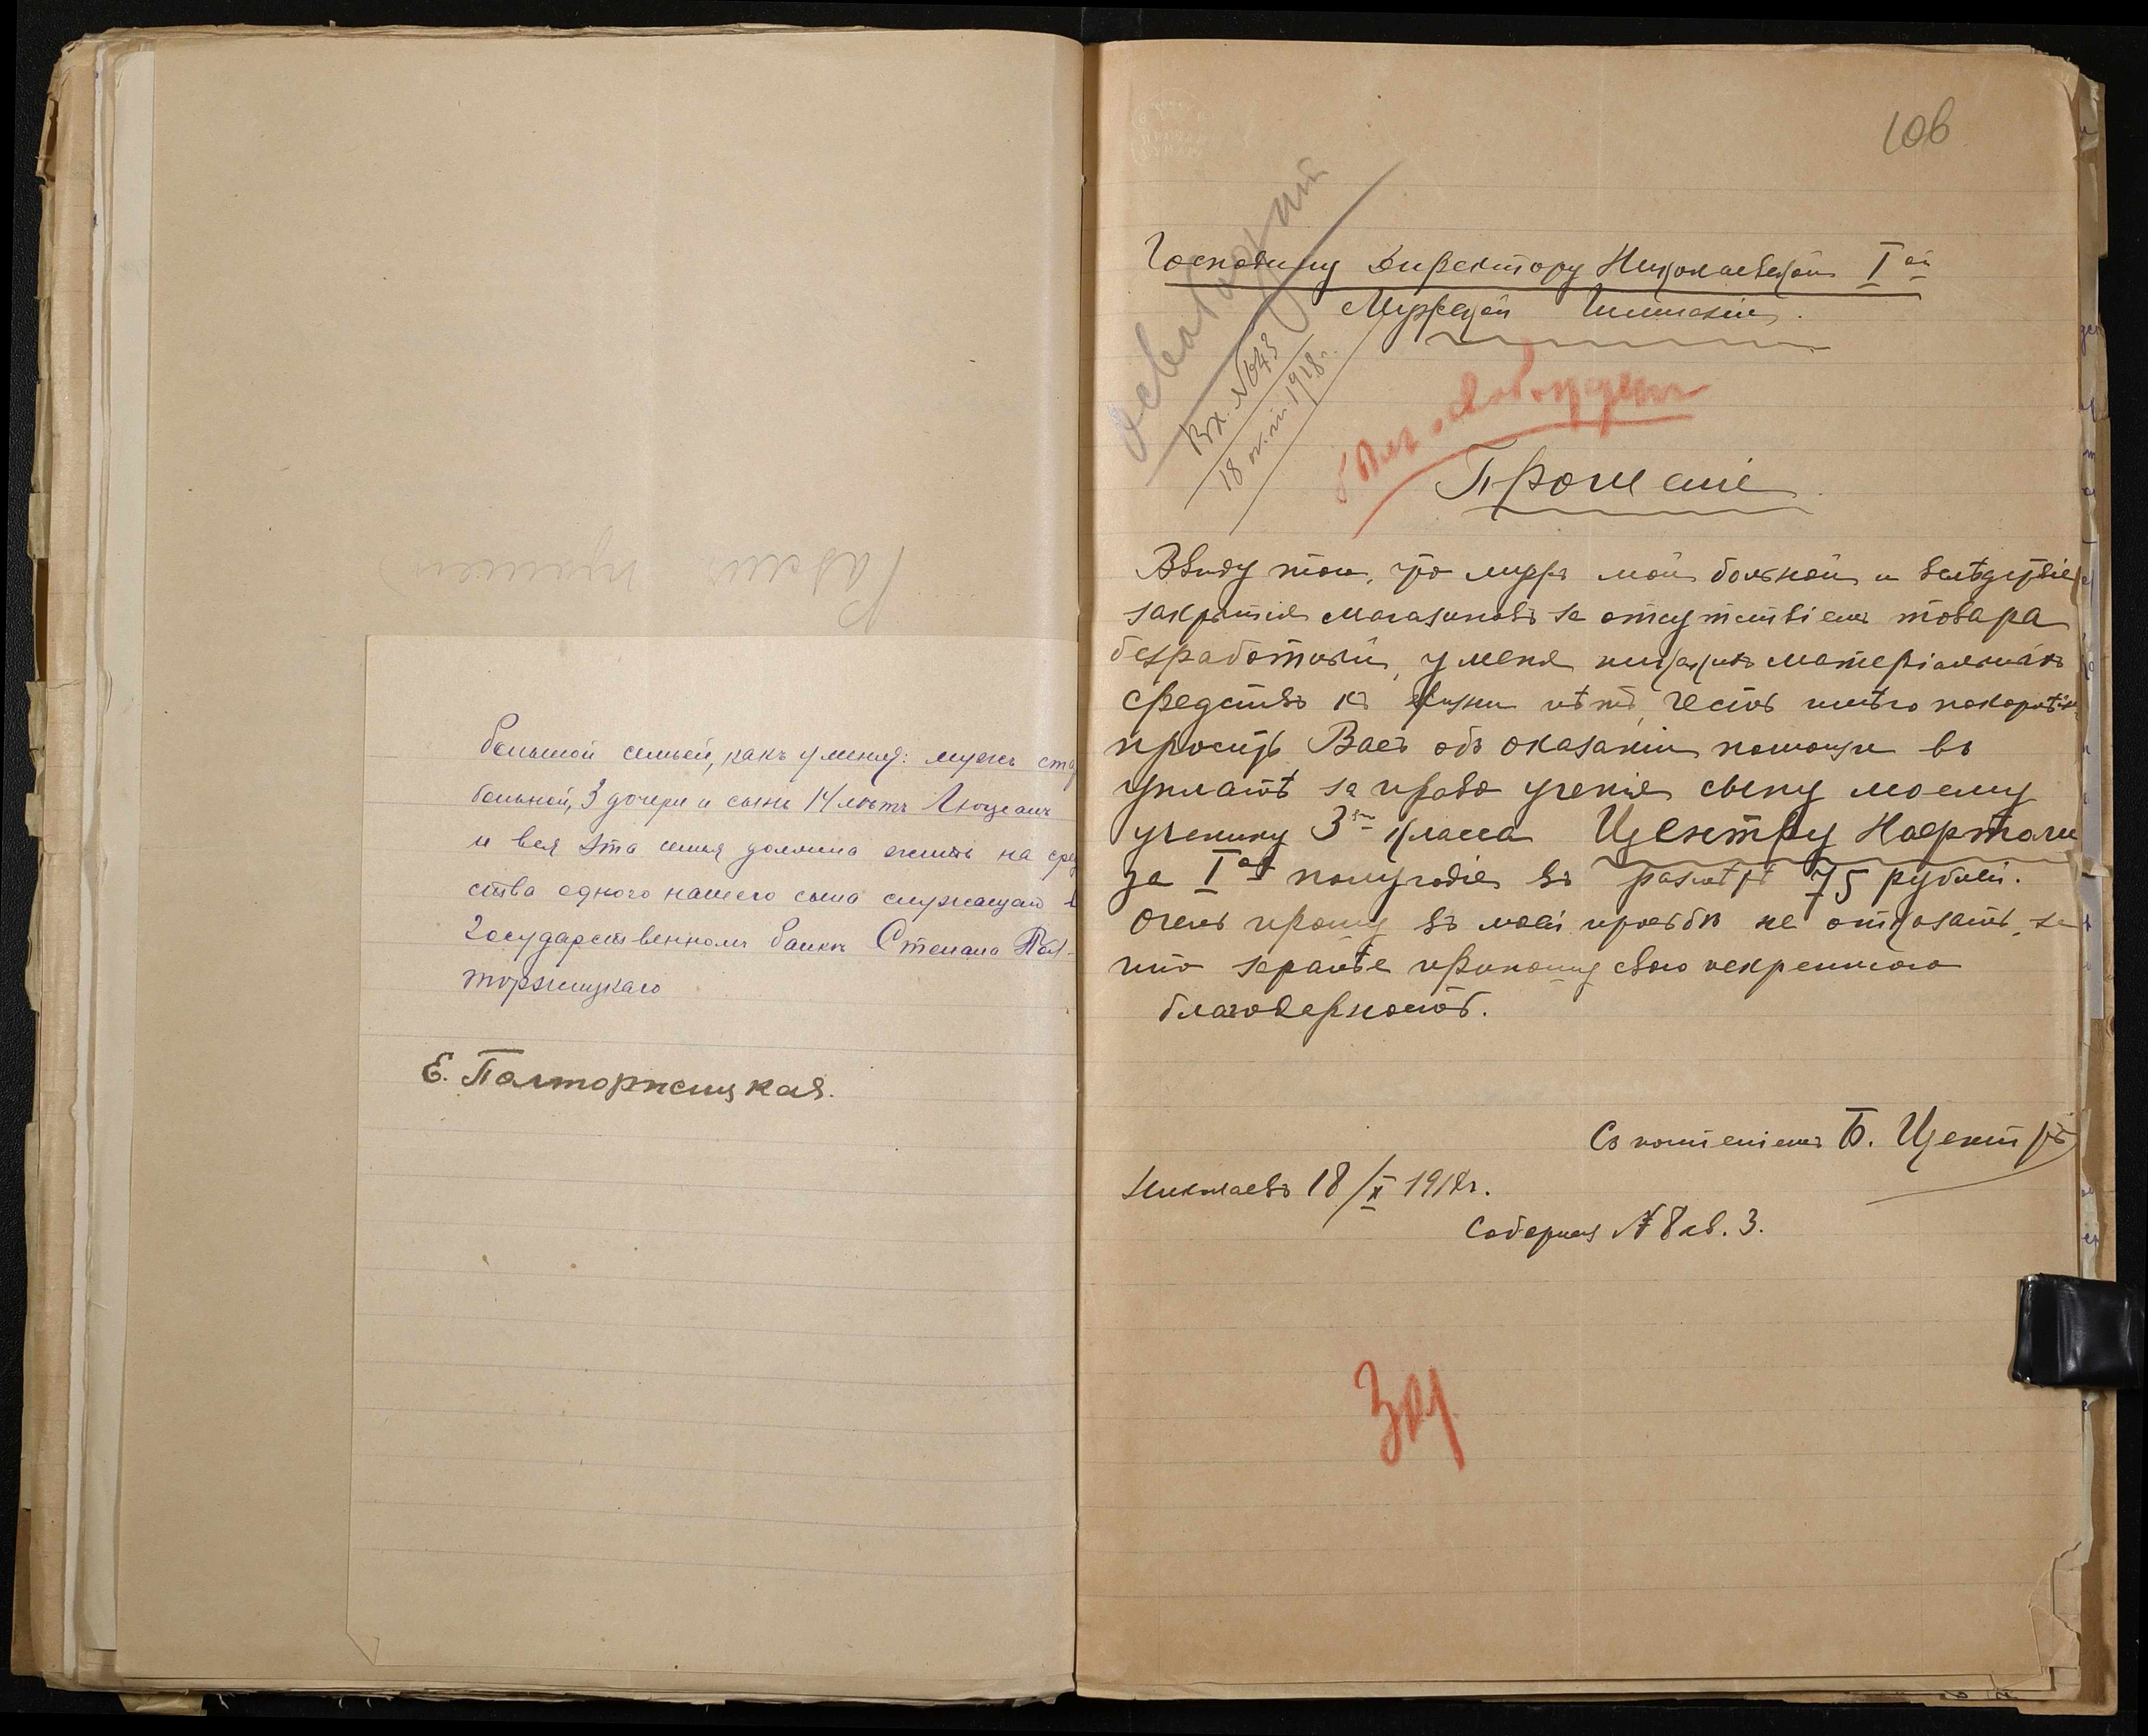 большой семьей, какъ у меня: мужъ ста
больной, 3 дочери и сынъ 14 лѣтъ Люцеанъ
и вся эта семья должна жить на сред
ства одного нашего сына служащаго в
Государственномъ банкѣ Степана Пол-
торжицкаго
Е. Полторжицкая.
106
освободить
Вх. №643
18 1918 г.
Господину Директору Николаевской I ой
Мужской Гимназіи.
освобожден
Прошеніе
Ввиду того, что мужъ мой больной и вслѣдствіе
закрытія магазиновъ за отсутствіемъ товара
безработный, у меня никакихъ матеріальныхъ
средствъ къ жизни нѣтъ, честь имѣю покорнѣйше
просить Васъ объ оказаніи помощи въ
уплатѣ за право ученія сыну моему
ученику 3 класса Центру Нафтали
за I ое полугодіе въ размѣрѣ 75 рублей.
Очень прошу въ моей просьбѣ не отказать, за
что заранѣе приношу свою искреннюю
благодарность.
Съ почтеніемъ Б. Центръ
Николаевъ 18/X 1918 г.
Соборная № 8 кв. 3.